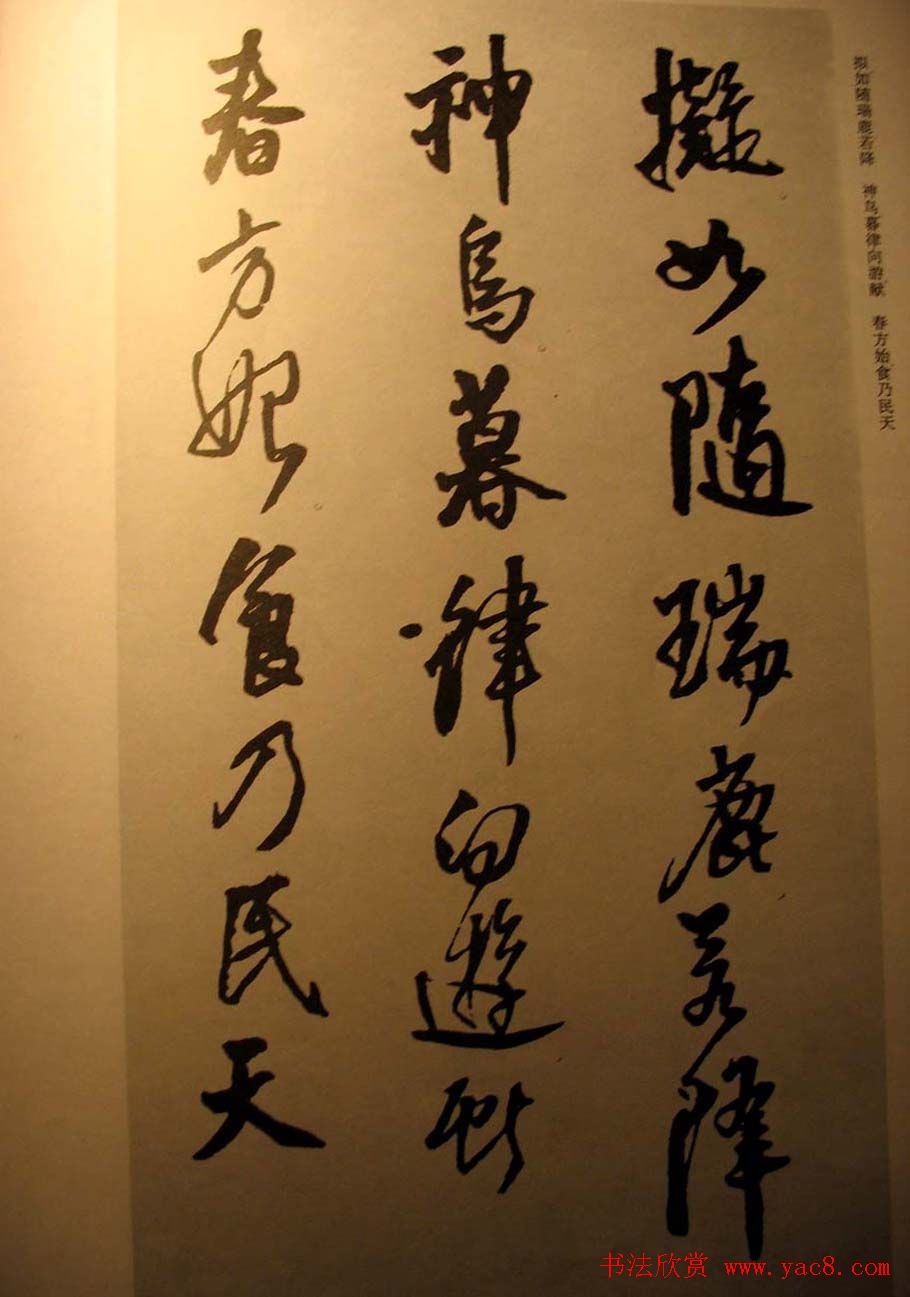 拟如随瑞鹿若降 神鸟暮律向游 春方始食乃民天
擬如隨瑞鹿若降
神鳥暮律向遊
春方始食乃民天
书法欣赏 www.yac8.com